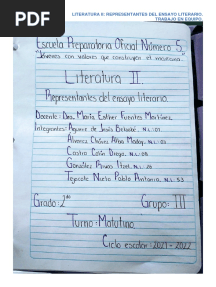 PDF
LITERATURA II: REPRESENTANTES DEL ENSAYO LITERARIO.
TRABAJO EN EQUIPO
Escuela Preparatoria Oficial Número 5
"Jóvenes con valores que construyen el mexicano"
Literatura II.
Representantes del ensayo literario.
Docente: Dra. María Esther Fuentes Martínez
Integrantes: de Jesús N.L:01
Álvarez Chávez Alba N.L:
Castro Colín Diego. N.L:
González Itzel. N.L:
Nieto Pablo Antonio. N.L: 53
Grado: 2do Grupo: III
Turno: Matutino
Ciclo escolar: 2021-2022